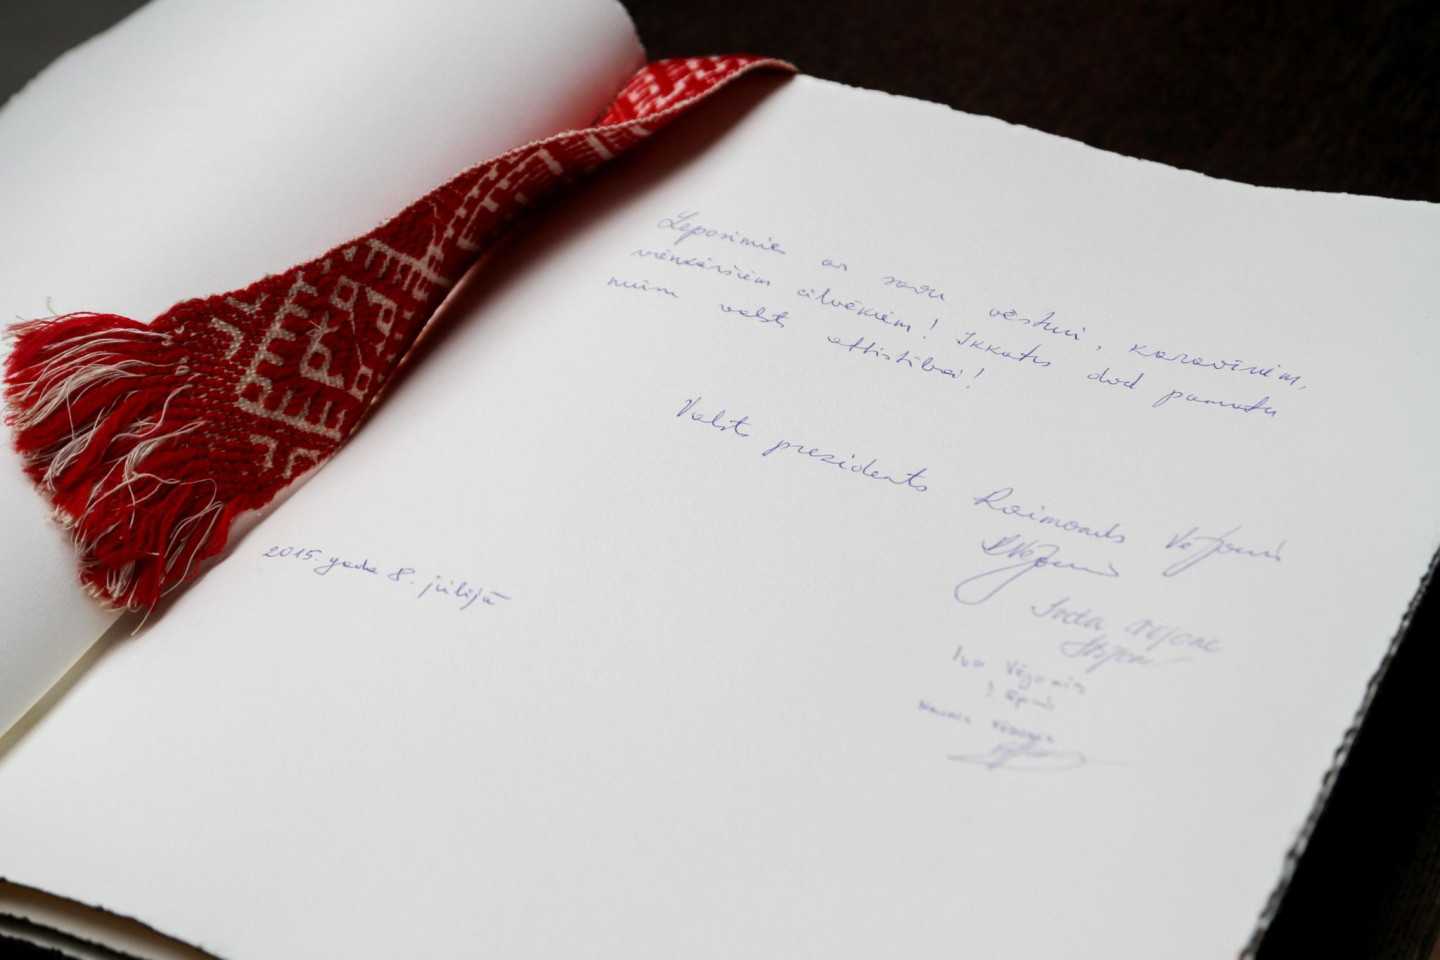 Leposimies ar savu vēsturi, karavīriem,
vienkāršiem cilvēkiem! Ikkatrs dod pamatu
mūsu valsts attīstībai!
Valsts prezidents Raimonds Vējonis
2015. gada 8. jūlijā
Iveta Vējone
Ivo Vējonis
Vējonis